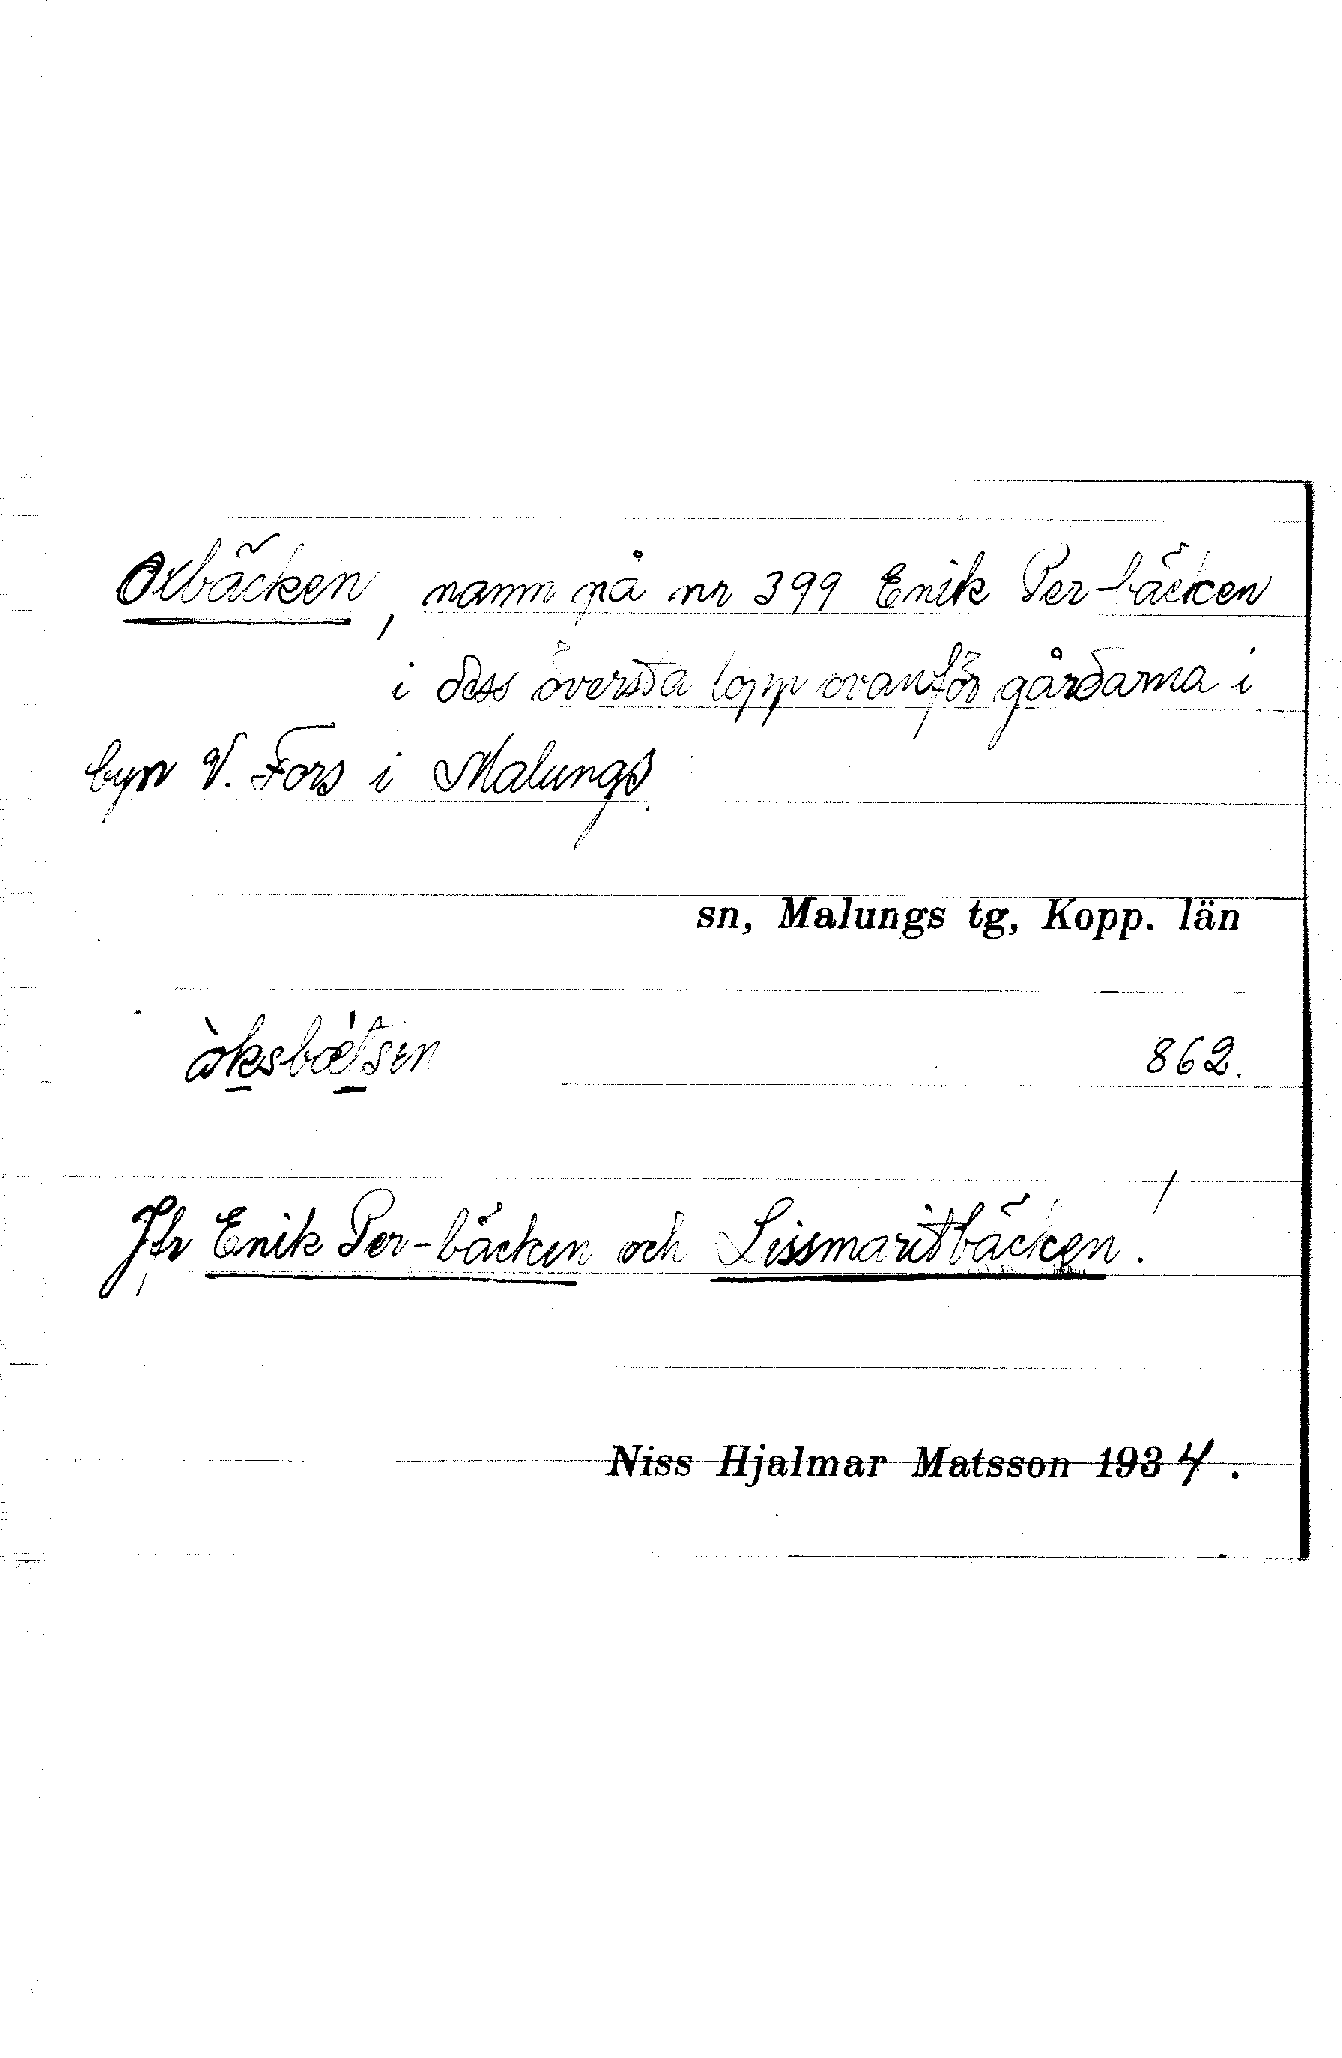 Oxbäcken, namn på nr 399 Erik Per-bäcken
i dess översta lopp ovanför gårdarna i
byn V. Fors i Malungs
sn, Malungs tg, Kopp. län
862.
Jfr Erik Per-bäcken och Lissmaritbäcken!
Niss Hjalmar Matsson 1934.